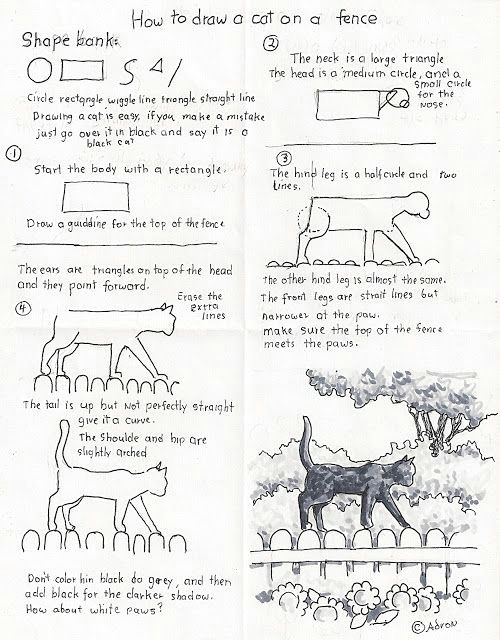 How to draw a cat on a fence
Shape bank:
Circle rectangle wiggle line triangle straight line
Drawing a cat is easy, if you make a mistake
just go over it in black and say it is a
black cat
1
Start the body with a rectangle.
Draw a guideline for the top of the fence
2
The neck is a large triangle
The head is a medium circle, and a
small circle
for the
nose.
3
The hind leg is a half circle and two
lines.
The other hind leg is almost the same.
The front legs are strait lines but
narrower at the paw.
make sure the top of the fence
meets the paws.
The ears are triangles on top of the head
and they point forward.
4
Erase the
extra
lines
The tail is up but not perfectly straight
give it a curve.
The shoulde and hip are
slightly arched
Don't color hin black do grey, and then
add black for the darker shadow.
How about white paws?
© Adron